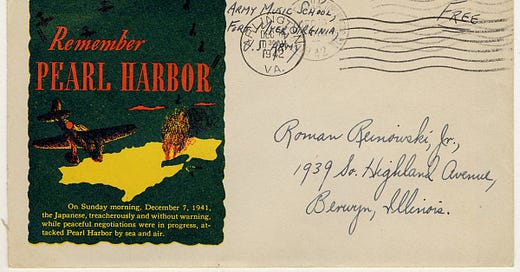 Army Music School,
Fort Myer, Virginia,
U.S. Army
Free
VA.
1942
Remember
PEARL HARBOR
On Sunday morning, December 7, 1941,
the Japanese, treacherously and without warning,
while peaceful negotiations were in progress, at-
tacked Pearl Harbor by sea and air.
Roman Reinowski, Jr.,
1939 So. Highland Avenue,
Berwyn, Illinois.